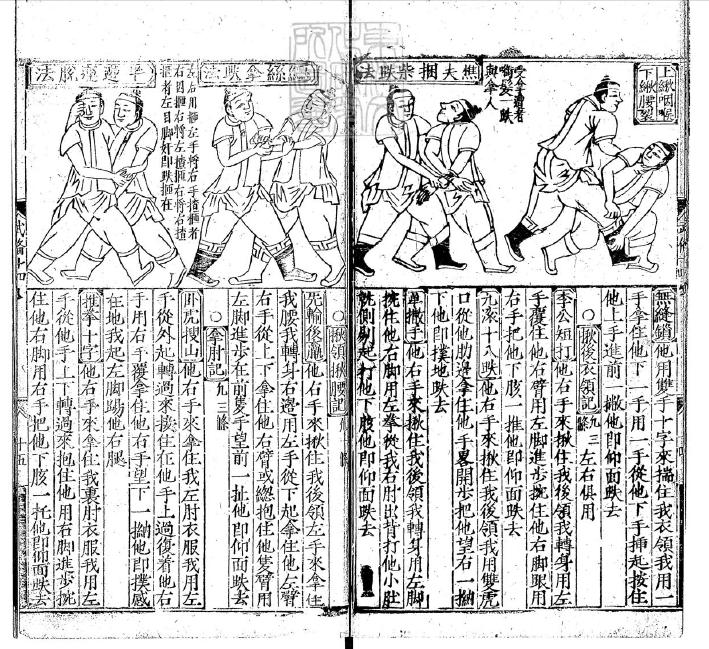 上緱咽喉
下緱腰裂
與拿人
樵夫捆柴跌法
無縫鎖他用雙手十字來揣住我衣領我用一
手拿住他下一手用一手從他下手挿起按住
他上手進前一撇他即仰面跌去
〇揪後衣領記凡三條左右俱用
李公短打他右手來揪住我後領我轉身用左
手覆住他右臂用左脚進步挽住他右脚跟用
右手把他下胲一推他即仰面跌去
九滾十八跌他右手來揪住我後領我用雙虎
口從他肋邊拿住他手畧開步把他望右一㧚
下他即撲地跌去
單撒手他右手來揪住我後領我轉身用左脚
挽住他右脚用左拳從我右肘出背打他小肚
就側剔起打他下胲他即仰面跌去
絲拿跌法
左右用
脫法
〇揪領揪腰記
先輸後贏他右手來揪住我後領左手來拿住
我腰我轉身右邊用左手從下起拿住他左臂
右手從上下拿住他右臂或總抱住他隻臂用
左脚進步在前隻手望前一扯他即仰面跌去
〇拿肘記凡三條
卧虎搜山他右手來拿住我左肘衣服我用左
手從外起轉過來按住在他手上過復着他右
手用右手覆拿住他右手望下一㧚他即撲
在地我起左脚踢他右腿
推拳十字他右手來拿住我裏肘衣服我用左
手從他手上下轉過來抱住他用右脚進步挽
住他右脚用右手把他下胲一托他即仰面跌去
十五